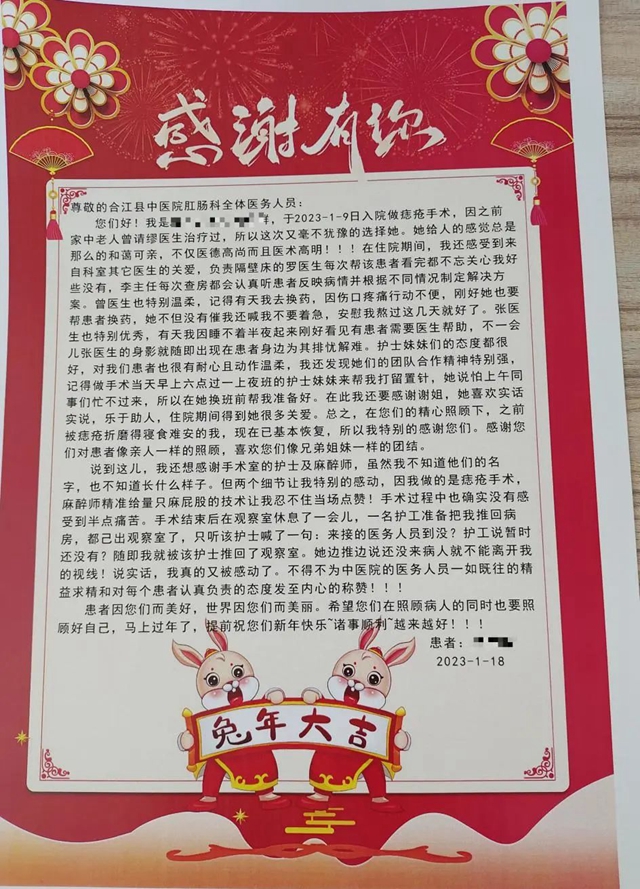 感谢有你
尊敬的合江县中医院肛肠科全体医务人员：
您们好！我是 群，于2023-1-9日入院做痔疮手术，因之前
家中老人曾请缪医生治疗过，所以这次又毫不犹豫的选择她。她给人的感觉总是
那么的和蔼可亲，不仅医德高尚而且医术高明！！！在住院期间，我还感受到来
自科室其它医生的关爱，负责隔壁床的罗医生每次帮该患者看完都不忘关心我好
些没有，李主任每次查房都会认真听患者反映病情并根据不同情况制定解决方
案。曾医生也特别温柔，记得有天我去换药，因伤口疼痛行动不便，刚好她也要
帮患者换药，她不但没有催我还喊我不要着急，安慰我熬过这几天就好了。张医
生也特别优秀，有天我因睡不着半夜起来刚好看见有患者需要医生帮助，不一会
儿张医生的身影就随即出现在患者身边为其排忧解难。护士妹妹们的态度都很
好，对我们患者也很有耐心且动作温柔，我还发现她们的团队合作精神特别强，
记得做手术当天早上六点过一上夜班的护士妹妹来帮我打留置针，她说怕上午同
事们忙不过来，所以在她换班前帮我准备好。在此我还要感谢谢姐，她喜欢实话
实说，乐于助人，住院期间得到她很多关爱。总之，在您们的精心照顾下，之前
被痔疮折磨得寝食难安的我，现在已基本恢复，所以我特别的感谢您们。感谢您
们对患者像亲人一样的照顾，喜欢您们像兄弟姐妹一样的团结。
说到这儿，我还想感谢手术室的护士及麻醉师，虽然我不知道他们的名
字，也不知道长什么样子。但两个细节让我特别的感动，因我做的是痔疮手术，
麻醉师精准给量只麻屁股的技术让我忍不住当场点赞！手术过程中也确实没有感
受到半点痛苦。手术结束后在观察室休息了一会儿，一名护工准备把我推回病
房，都已出观察室了，只听该护士喊了一句：来接的医务人员到没？护工说暂时
还没有？随即我就被该护士推回了观察室。她边推边说还没来病人就不能离开我
的视线！说实话，我真的又被感动了。不得不为中医院的医务人员一如既往的精
益求精和对每个患者认真负责的态度发至内心的称赞！！！
患者因您们而美好，世界因您们而美丽。希望您们在照顾病人的同时也要照
顾好自己，马上过年了，提前祝您们新年快乐~诸事顺利~越来越好！！！
患者：
2023-1-18
兔年大吉